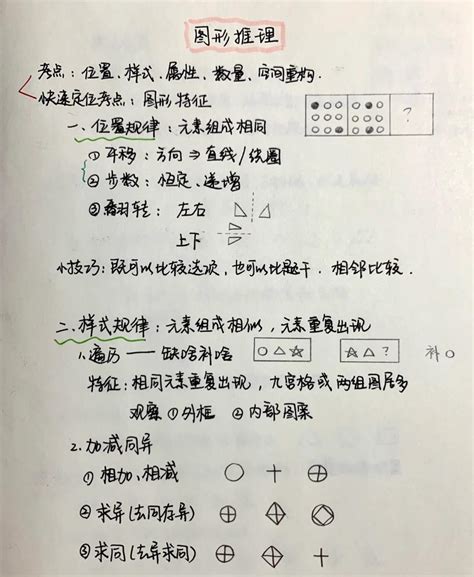 图形推理
考点：位置、样式、属性、数量、空间重构.
快速定位考点：图形特征
?
一、位置规律：元素组成相同
①平移：方向⇒直线/绕圈
②步数：恒定、递增
③翻转：左右
上下
小技巧：既可以比较选项，也可以比题干. 相邻比较.
二、样式规律：元素组成相似，元素重复出现
1.遍历——缺啥补啥 ○△☆ ☆△? 补○
特征：相同元素重复出现，九宫格或两组图居多
观察①外框 ②内部图案
2.加减同异
①相加、相减
②求异(去同存异)
③求同(去异求同)